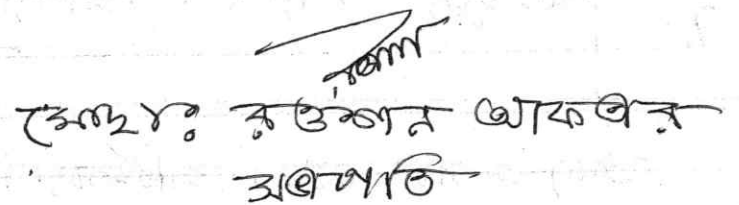 মোছাঃ রওশন আকতার
সভাপতি